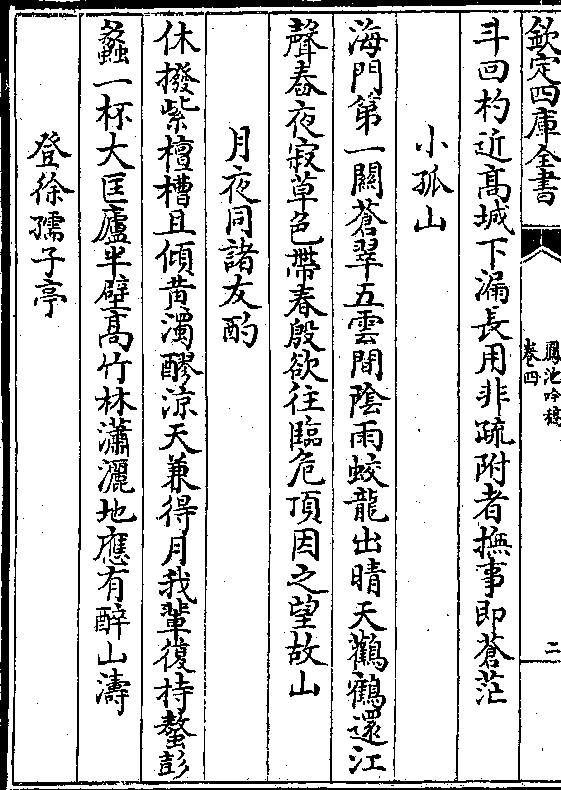 欽定四庫全書
鳳池吟稿
卷四
二
斗回杓近髙城下漏長用非疏附者撫事即蒼茫
小孤山
海門第一關蒼翠五雲間陰雨蛟龍出晴天鸛鶴還江
聲舂夜寂草色帶春殷欲往臨危頂因之望故山
月夜同諸友酌
休撥紫檀槽且傾黄濁醪凉天兼得月我輩復持螯彭
蠡一杯大匡廬半壁髙竹林瀟灑地應有醉山濤
登徐孺子亭